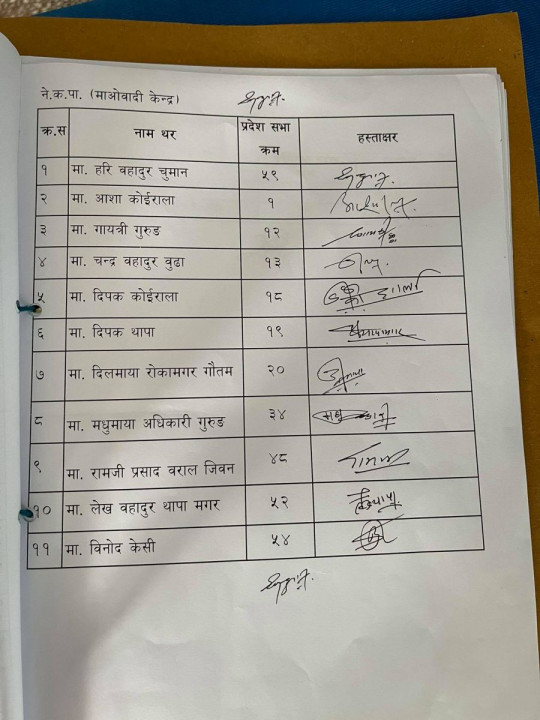 ने.क.पा. (माओवादी केन्द्र)
क्र.स नाम थर प्रदेश सभा क्रम हस्ताक्षर
१ मा. हरि वहादुर चुमान ५९
२ मा. आशा कोईराला १
३ मा. गायत्री गुरुङ १२
४ मा. चन्द्र वहादुर वुढा १३
५ मा. दिपक कोईराला १८
६ मा. दिपक थापा १९
७ मा. दिलमाया रोकामगर गौतम २०
८ मा. मधुमाया अधिकारी गुरुङ ३४
९ मा. रामजी प्रसाद वराल जिवन ४८
१० मा. लेख वहादुर थापा मगर ५२
११ मा. विनोद केसी ५४